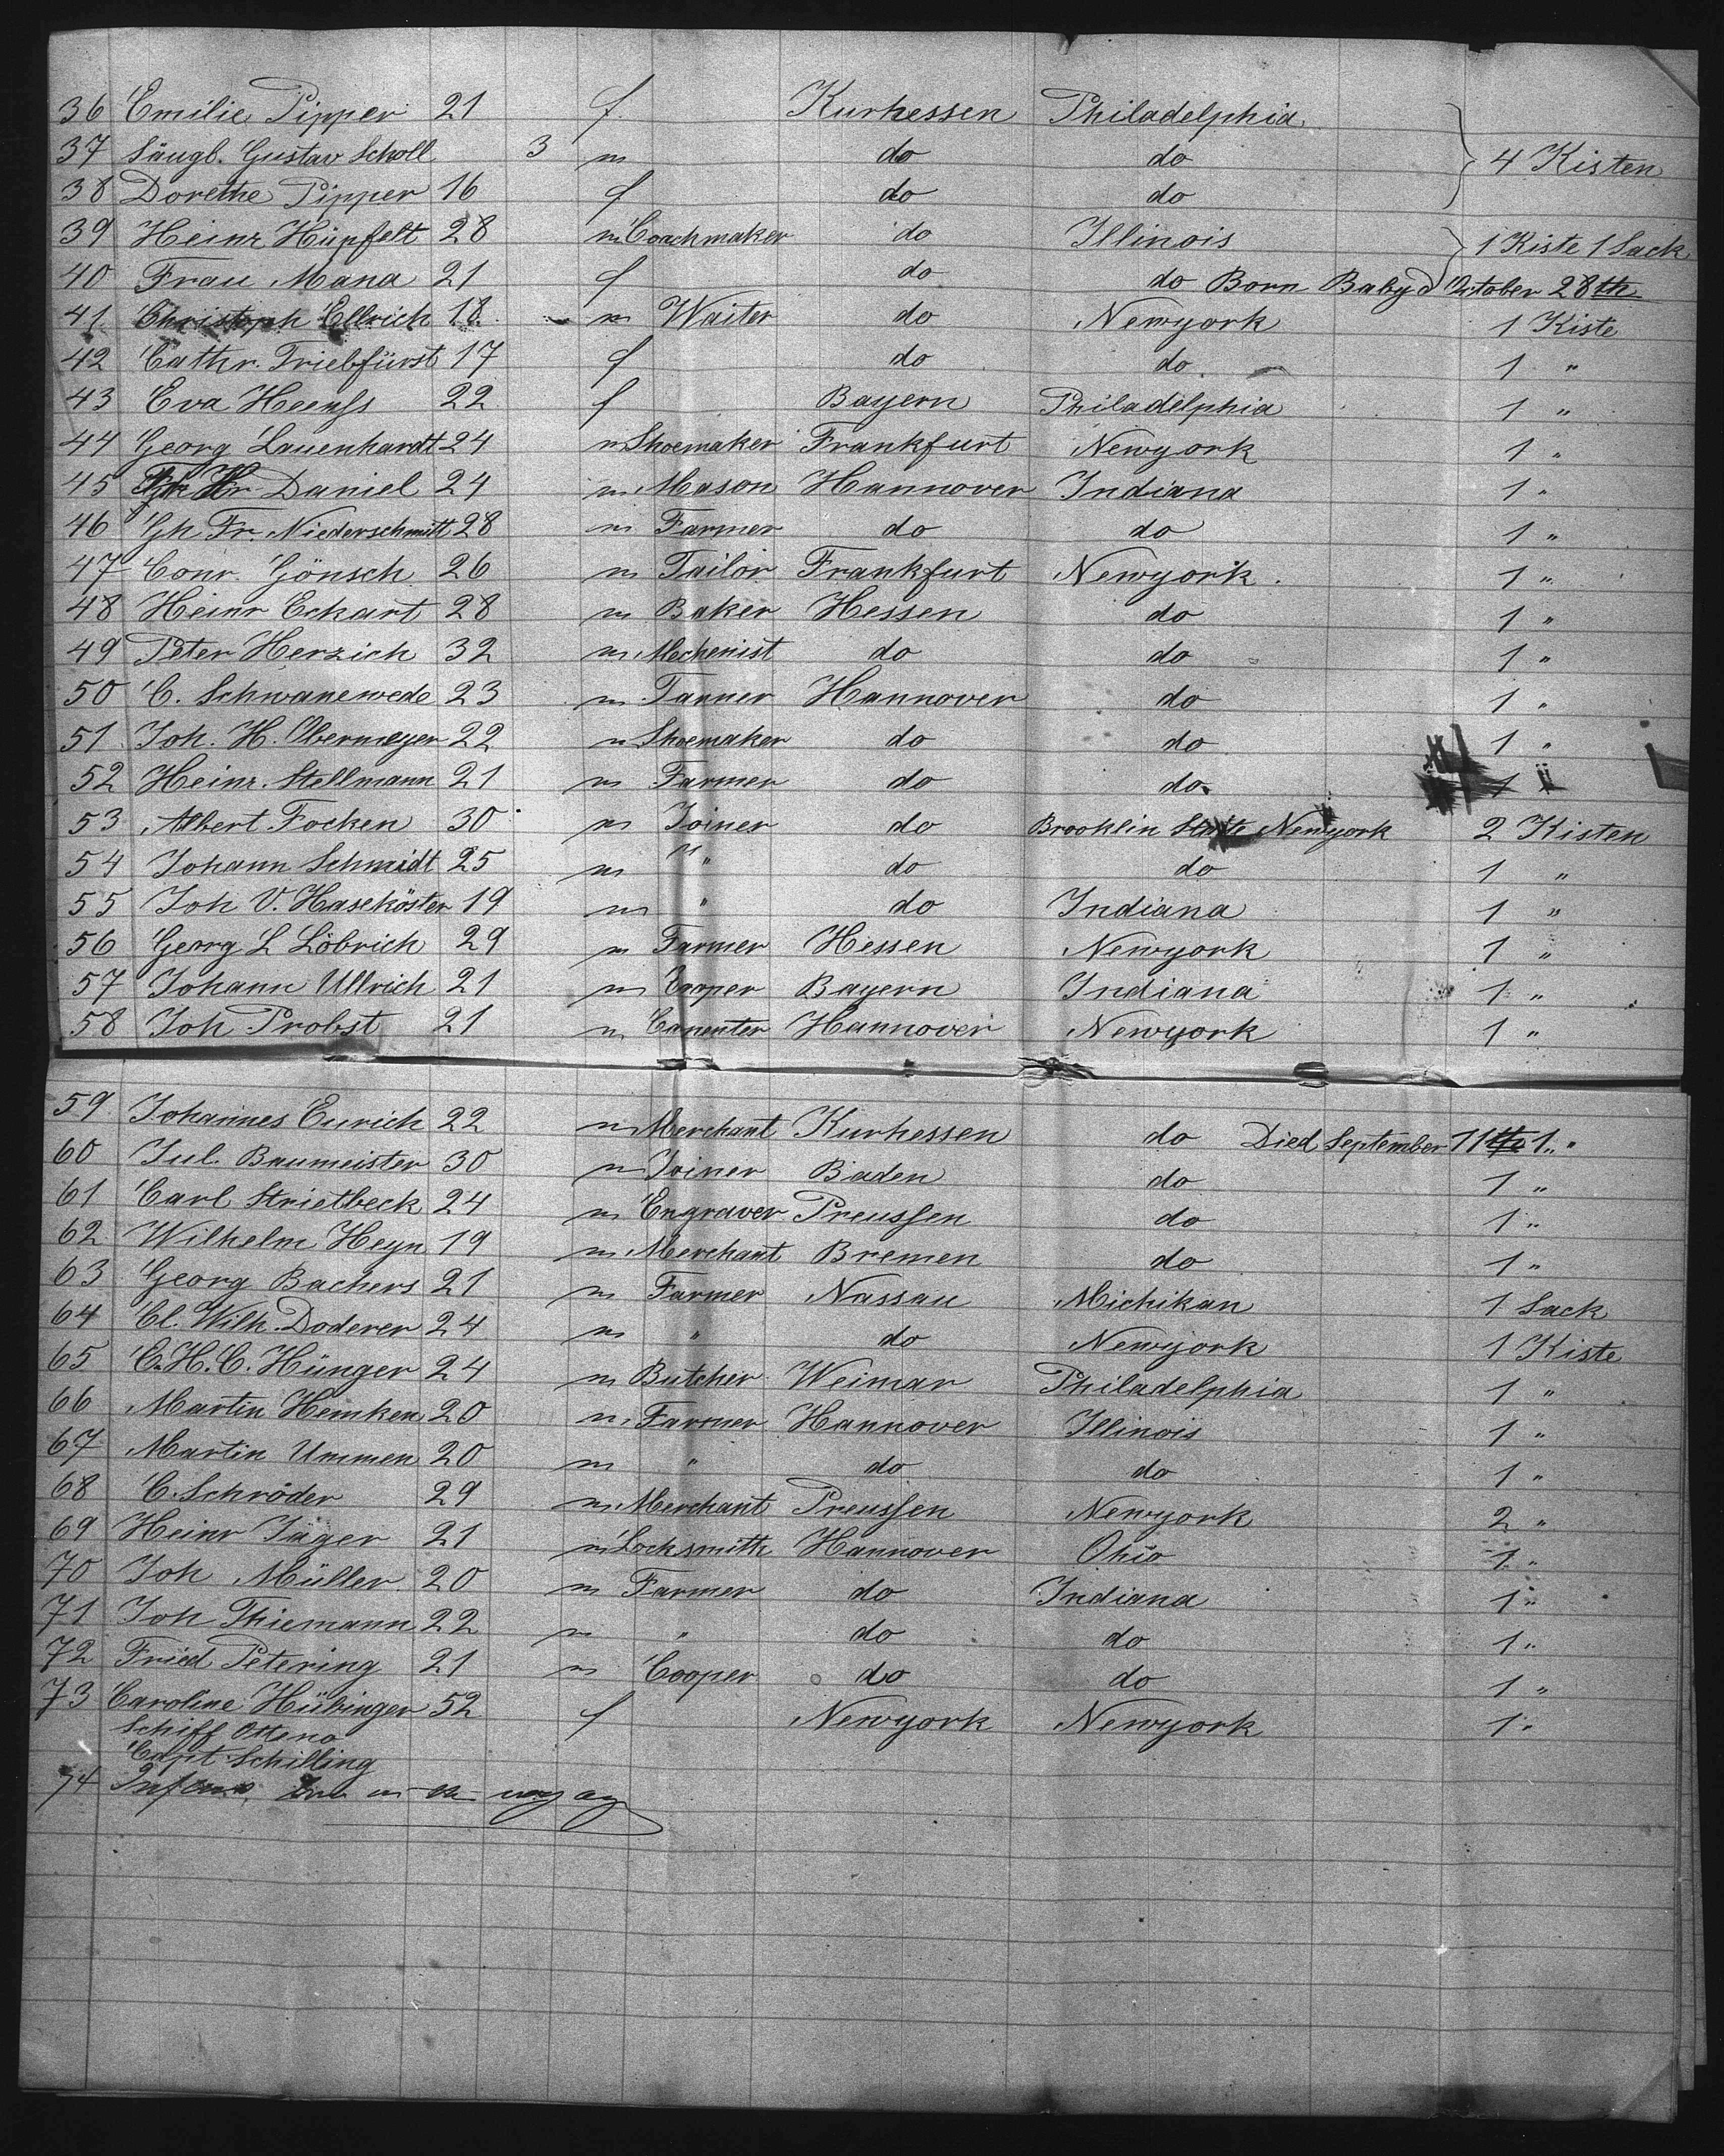 36 Emilie Pipper 21 f Kurhessen Philadelphia
37 Säugl. Gustav Scholl 3 m do do 4 Kisten
38 Dorethe Pipper 16 f do do
39 Heinr Hüpfelt 28 m Coachmaker do Illinois 1 Kiste 1 Sack
40 Frau Mana 21 f do do Born Baby October 28th
41 Christoph Ellrich 18 m Waiter do Newyork 1 Kiste
42 Cathr. Triebfürst 17 f do do 1 "
43 Eva 22 f Bayern Philadelphia 1 "
44 Georg Lauenhardt 24 m Shoemaker Frankfurt Newyork 1 "
45 Daniel 24 m Mason Hannover Indiana 1 "
46 Gh. Fr. Niederschmitt 28 m Farmer do do 1 "
47 Conr. Gönsch 26 m Tailor Frankfurt Newyork 1 "
48 Heinr Eckart 28 m Baker Hessen do 1 "
49 Peter Herzich 32 m Mechenist do do 1 "
50 C. Schwanewede 23 m Tanner Hannover do 1 "
51 Joh. H. Obermeyer 22 m Shoemaker do do 1 "
52 Heinr. Stellmann 21 m Farmer do do 1 "
53 Albert Focken 30 m Joiner do Brooklin State Newyork 2 Kisten
54 Johann Schmidt 25 m " do do 1 "
55 Joh V. Haseköster 19 m " do Indiana 1 "
56 Georg L Löbrich 29 m Farmer Hessen Newyork 1 "
57 Johann Ullrich 21 m Cooper Bayern Indiana 1 "
58 Joh Probst 21 m Carpenter Hannover Newyork 1 "
59 Johannes Eurich 22 m Merchant Kurhessen do Died September 11th 1 "
60 Jul. Baumeister 30 m Joiner Baden do 1 "
61 Carl Strietbeck 24 m Engraver Preussen do 1 "
62 Wilhelm Heyn 19 m Merchant Bremen do 1 "
63 Georg Bachers 21 m Farmer Nassau Michikan 1 Sack
64 Cl. Wilh. Doderer 24 m " do Newyork 1 Kiste
65 C. H. C. Hünger 24 m Butcher Weimar Philadelphia 1 "
66 Martin Hemken 20 m Farmer Hannover Illinois 1 "
67 Martin Ummen 20 m " do do 1 "
68 C. Schröder 29 m Merchant Preussen Newyork 2 "
69 Heinr Jäger 21 m Locksmith Hannover Ohio 1 "
70 Joh Müller 20 m Farmer do Indiana 1 "
71 Joh Thiemann 22 m " do do 1 "
72 Fried Petering 21 m Cooper do do 1 "
73 Caroline Hübinger 52 f Newyork Newyork 1 "
Schiff Olleno
Capt. Schilling
74 Infant